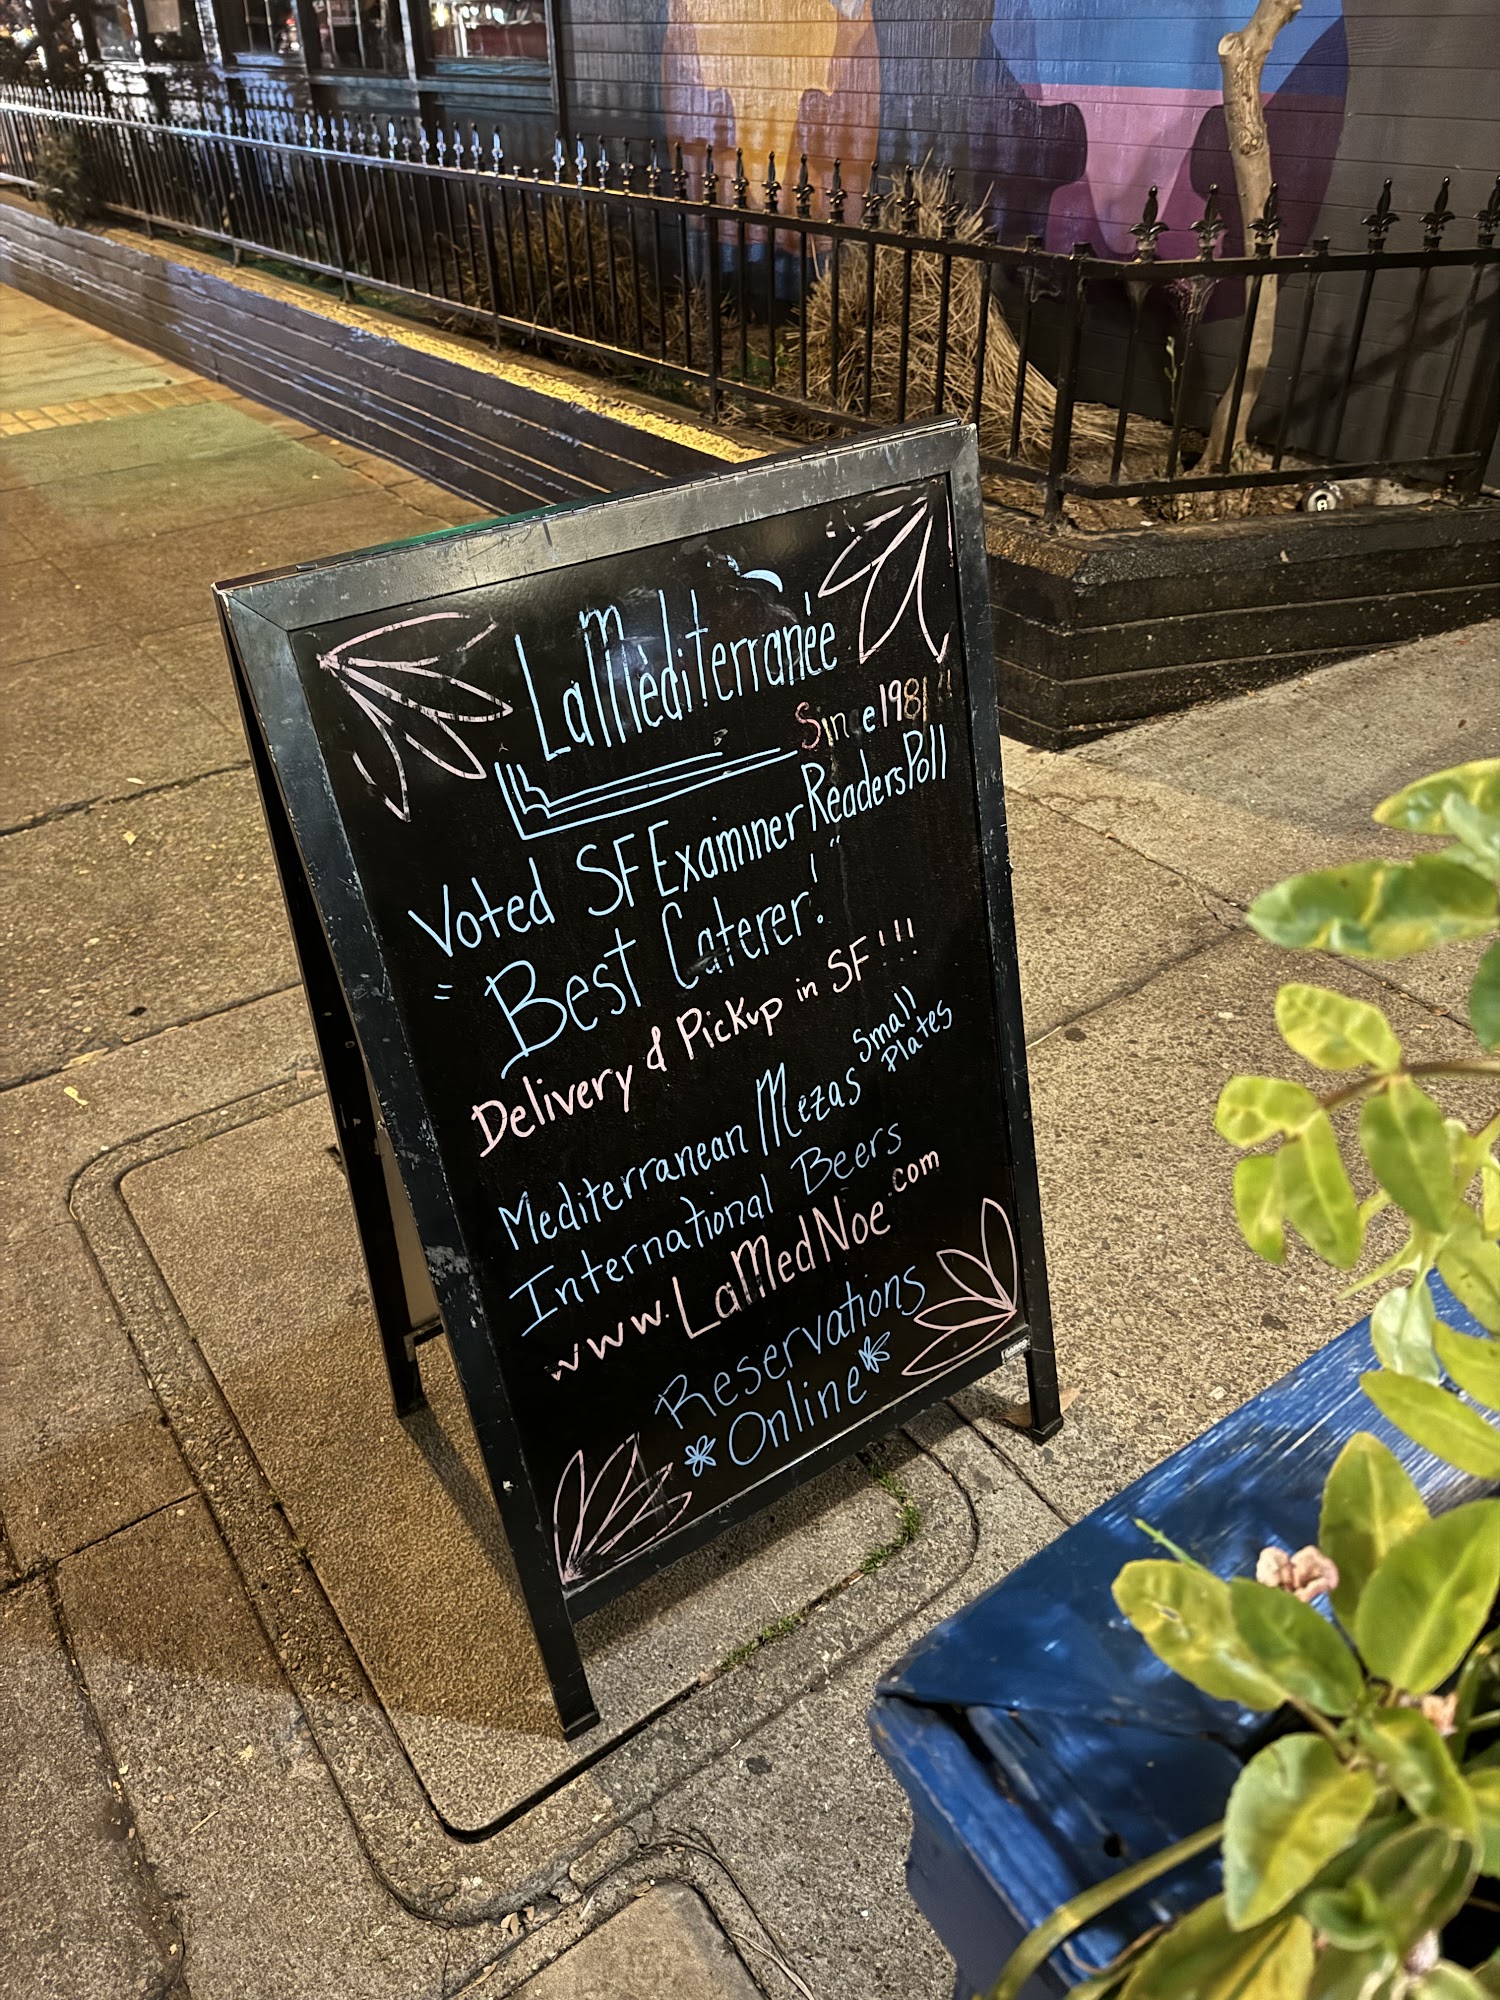 La Mèditerranée
Since 1981!!
Voted SF Examiner Readers Poll
"Best Caterer!"
Delivery & Pickup in SF!!!
Mediterranean Mezas Small Plates
International Beers
www.LaMedNoe.com
Reservations
Online